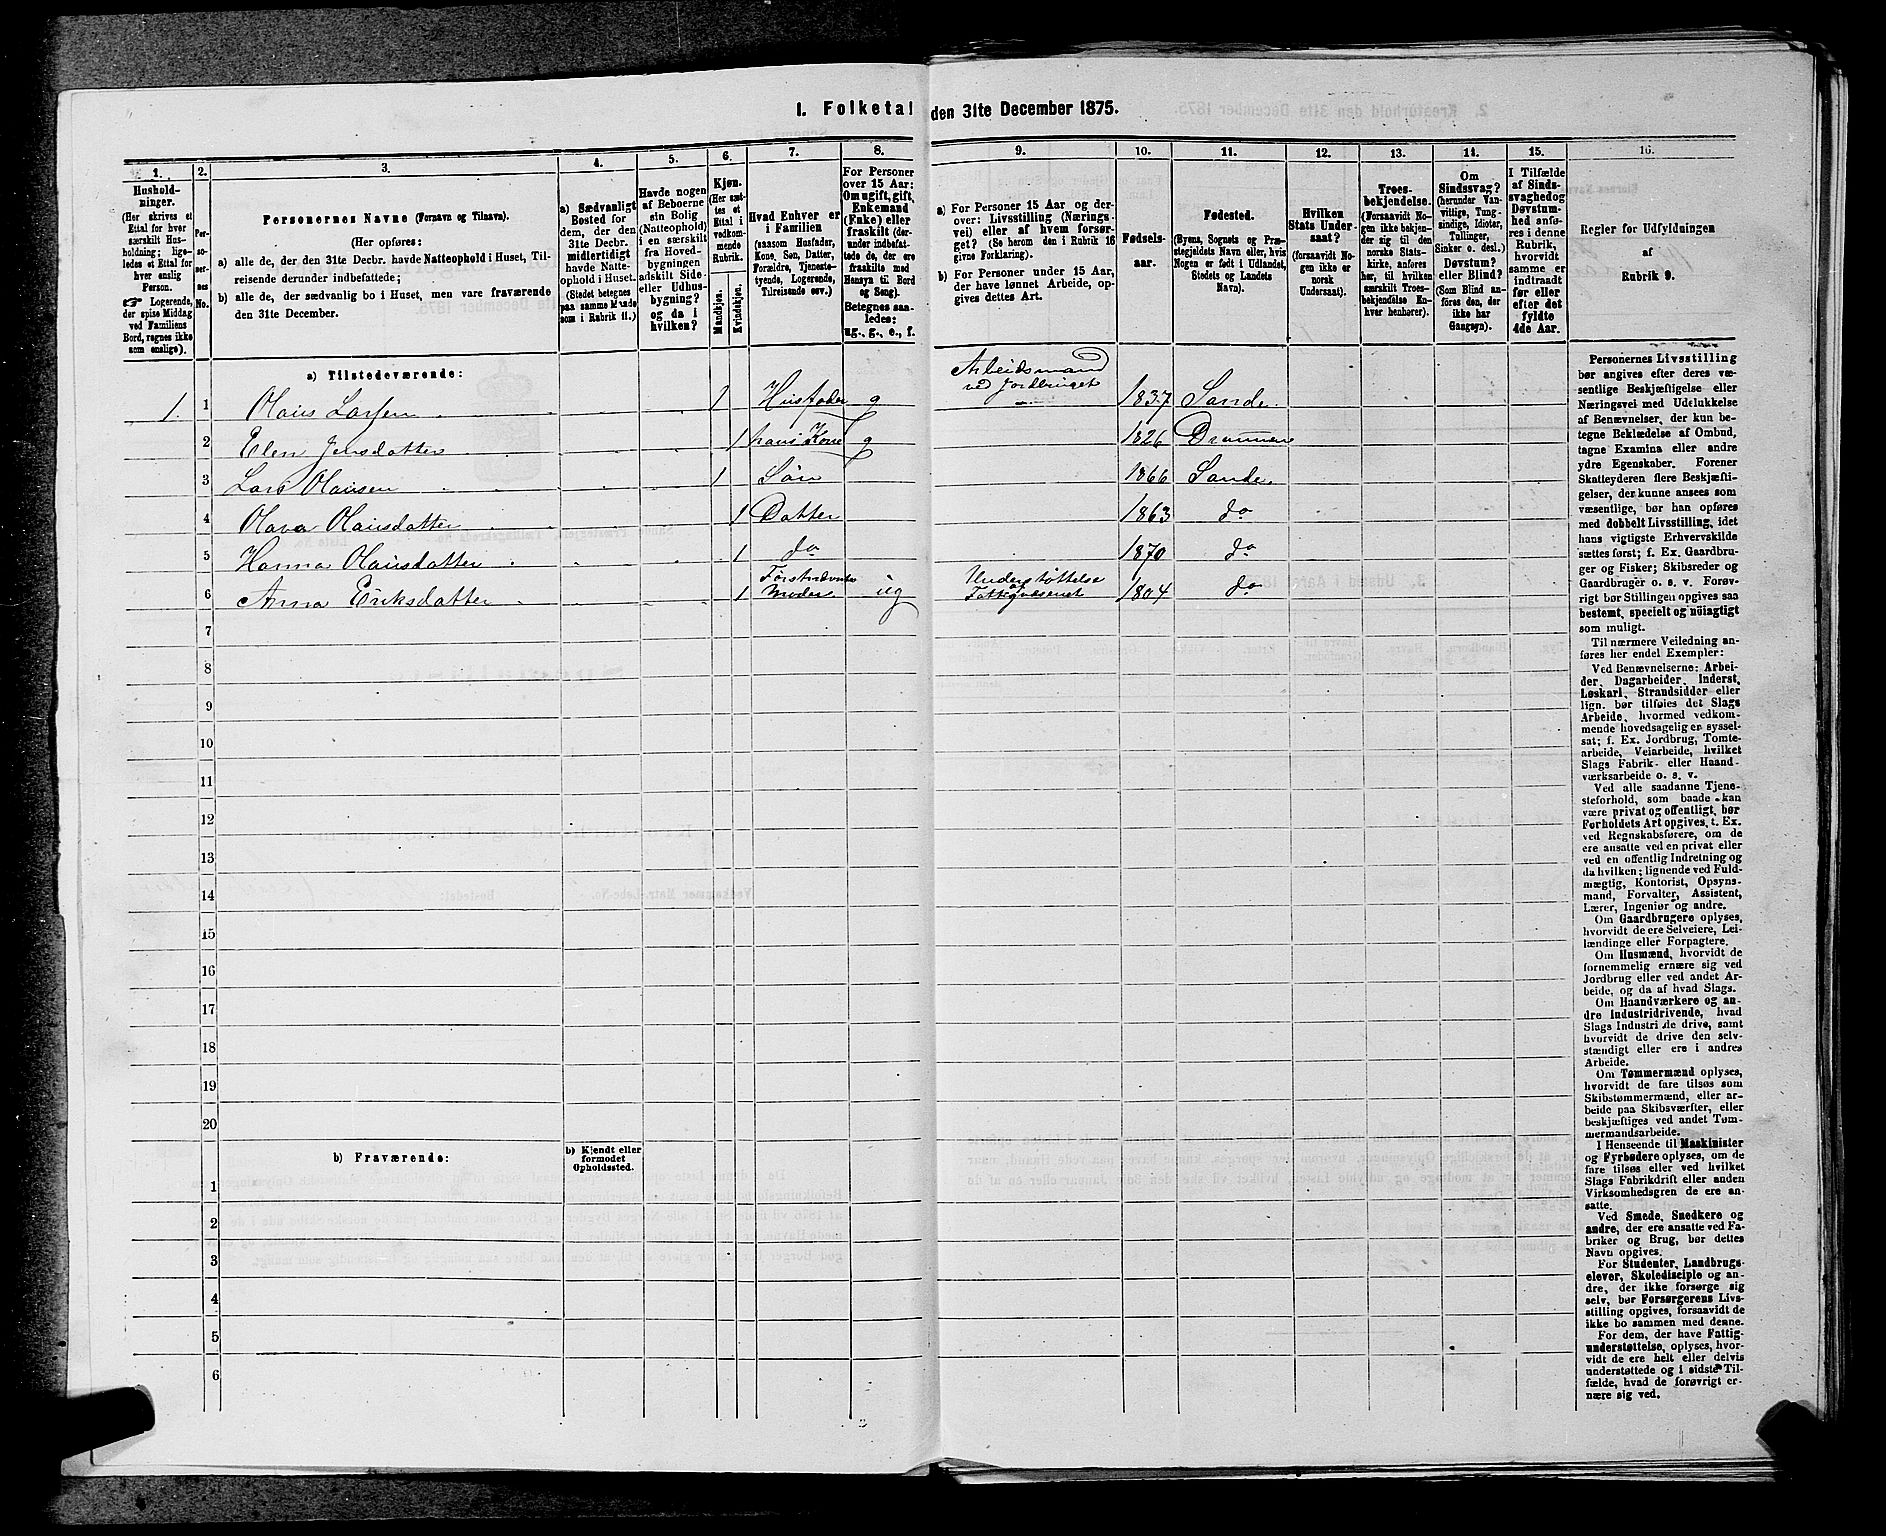 1. Folketal den 31te December 1875.
1.
Hushold-
ninger.
(Her skrives et
Ettal for hver
særskilt Hus-
holdning; lige-
ledes et Ettal for
hver enslig
Person.
☞ Logerende,
der spise Middag
ved Familiens
Bord, regnes ikke
som enslige).
2.
Per-
so-
ner-
nes
No.
3.
Personernes Navne (Fornavn og Tilnavn).
(Her opføres:
a) alle de, der den 31te Decbr. havde Natteophold i Huset, Til-
reisende derunder indbefattede;
b) alle de, der sædvanlig bo i Huset, men vare fraværende
den 31te December.
4.
a) Sædvanligt
Bosted for
dem, der den
31te Decbr.
midlertidigt
havde Natte-
ophold i Huset.
(Stedet betegnes
paa samme Maade
som i Rubrik 11.)
5.
Havde nogen
af Beboerne
sin Bolig
(Natteophold)
i en særskilt
fra Hoved-
bygningen
adskilt Side-
eller Udhus-
bygning?
og da i
hvilken?
6.
Kjøn.
(Her sæt-
tes et
Ettal i
vedkom-
mende
Rubrik.
Mandkjøn.
Kvindekjøn.
7.
Hvad Enhver er
i Familien
(saasom Husfader,
Kone, Søn, Datter,
Forældre, Tjeneste-
tyende, Logerende,
Tilreisende osv.)
8.
For Personer
over 15 Aar:
Om ugift, gift,
Enkemand
(Enke) eller
fraskilt (der-
under indbefat-
tede de, der ere
fraskilte med
Hensyn til Bord
og Seng).
Betegnes saa-
ledes:
ug., g., e., f.
9.
a) For Personer 15 Aar og der-
over: Livsstilling (Nærings-
vei) eller af hvem forsør-
get? (Se herom den i Rubrik 16
givne Forklaring).
b) For Personer under 15 Aar,
der have lønnet Arbeide, op-
gives dettes Art.
10.
Fødsels-
aar.
11.
Fødested.
(Byens, Sognets og Præ-
stegjeldets Navn eller, hvis
Nogen er født i Udlandet,
Stedets og Landets
Navn).
12.
Hvilken
Stats Under-
saat?
(forsaavidt No-
gen ikke er
norsk
Undersaat).
13.
Troes-
bekjendelse.
(Forsaavidt No-
gen ikke bekjen-
der sig til den
norske Stats-
kirke, anføres
her, til hvilken
særskilt Troes-
bekjendelse En-
hver henhører).
14.
Om
Sindssvag?
(herunder Van-
vittige, Tung-
sindige, Idioter,
Tullinger,
Sinker o. desl.)
Døvstum?
eller Blind?
(Som Blind an-
føres den, der
ikke har
Gangsyn).
15.
I Tilfælde
af Sinds-
svaghed og
Døvstum-
hed anfø-
res i denne
Rubrik,
hvorvidt
samme er
indtraadt
før eller
efter det
fyldte
4de Aar.
16.
Regler for Udfyldningen
af
Rubrik 9.
a) Tilstedeværende:
1. 1 Olaus Larsen 1 Husfader g Arbeidsmand ved Jordbruget 1837 Sande.
2 Elen Jensdatter 1 hans Kone g 1826 Drammen
3 Lars Olausen 1 Søn 1866 Sande.
4 Olava Olausdatter 1 Datter 1863 do
5 Hanna Olausdatter 1 do 1870 do
6 Anna Eriksdatter 1 Moder ug Understøttelse af Fattigvæsenet 1804 do
7
8
9
10
11
12
13
14
15
16
17
18
19
20
b) Fraværende:
b) Kjendt eller
formodet
Opholdssted.
1
2
3
4
5
6
Personernes Livsstilling
bør angives efter deres væ-
sentlige Beskjæftigelse eller
Næringsvei med Udelukkelse
af Benævnelser, der kun be-
tegne Beklædelse af Ombud,
tagne Examina eller andre
ydre Egenskaber. Forener
Skatteyderen flere Beskjæfti-
gelser, der kunne ansees som
væsentlige, bør han opføres
med dobbelt Livsstilling, idet
hans vigtigste Erhvervskilde
sættes først; f. Ex. Gaardbru-
ger og Fisker; Skibsreder og
Gaardbruger o. s. v. Forøv-
rigt bør Stillingen opgives saa
bestemt, specielt og nöiagtigt
som muligt.
Til nærmere Veiledning an-
føres her endel Exempler:
Ved Benævnelserne: Arbei-
der, Dagarbeider, Inderst,
Løskarl, Strandsidder eller
lign. bør tilføies det Slags
Arbeide, hvormed vedkom-
mende hovedsagelig er syssel-
sat; f. Ex. Jordbrug, Tomte-
arbeide, Veiarbeide, hvilket
Slags Fabrik- eller Haand-
værksarbeide o. s. v.
Ved alle saadanne Tjene-
steforhold, som baade kan
være privat og offentligt, bør
Forholdets Art opgives, t. Ex.
ved Regnskabsførere, om de
ere ansatte ved en privat eller
ved en offentlig Indretning og
da hvilken; lignende ved Fuld-
mægtig, Kontorist, Opsyns-
mand, Forvalter, Assistent,
Lærer, Ingeniør og andre.
Om Gaardbrugere oplyses,
hvorvidt de ere Selveiere, Lei-
lændinge eller Forpagtere.
Om Husmænd, hvorvidt de
fornemmelig ernære sig ved
Jordbrug eller ved andet Ar-
beide, og da af hvad Slags.
Om Haandværkere og an-
dre Industridrivende, hvad
Slags Industri de drive, samt
hvorvidt de drive den selv-
stændigt eller ere i andres
Arbeide.
Om Tømmermænd oplyses,
hvorvidt de fare tilsøs som
Skibstømmermænd, eller ar-
beide paa Skibsværfter, eller
beskjæftiges ved andet Tøm-
mermandsarbeide.
I Henseende til Maskinister
og Fyrbødere oplyses, om de
fare tilsøs eller ved hvilket
Slags Fabrikdrift eller anden
Virksomhedsgren de ere an-
satte.
Ved Smede, Snedkere og
andre, der ere ansatte ved Fa-
briker og Brug, bør dettes
Navn opgives.
For Studenter, Landbrugs-
elever, Skoledisciple og an-
dre, der ikke forsørge sig
selv, bør Forsørgerens Livs-
stilling opgives, forsaavidt de
ikke bo sammen med denne.
For dem, der have Fattig-
understøttelse, oplyses, hvor-
vidt de ere helt eller delvis
understøttede og i sidste Til-
fælde, hvad de forøvrigt er-
nære sig ved.